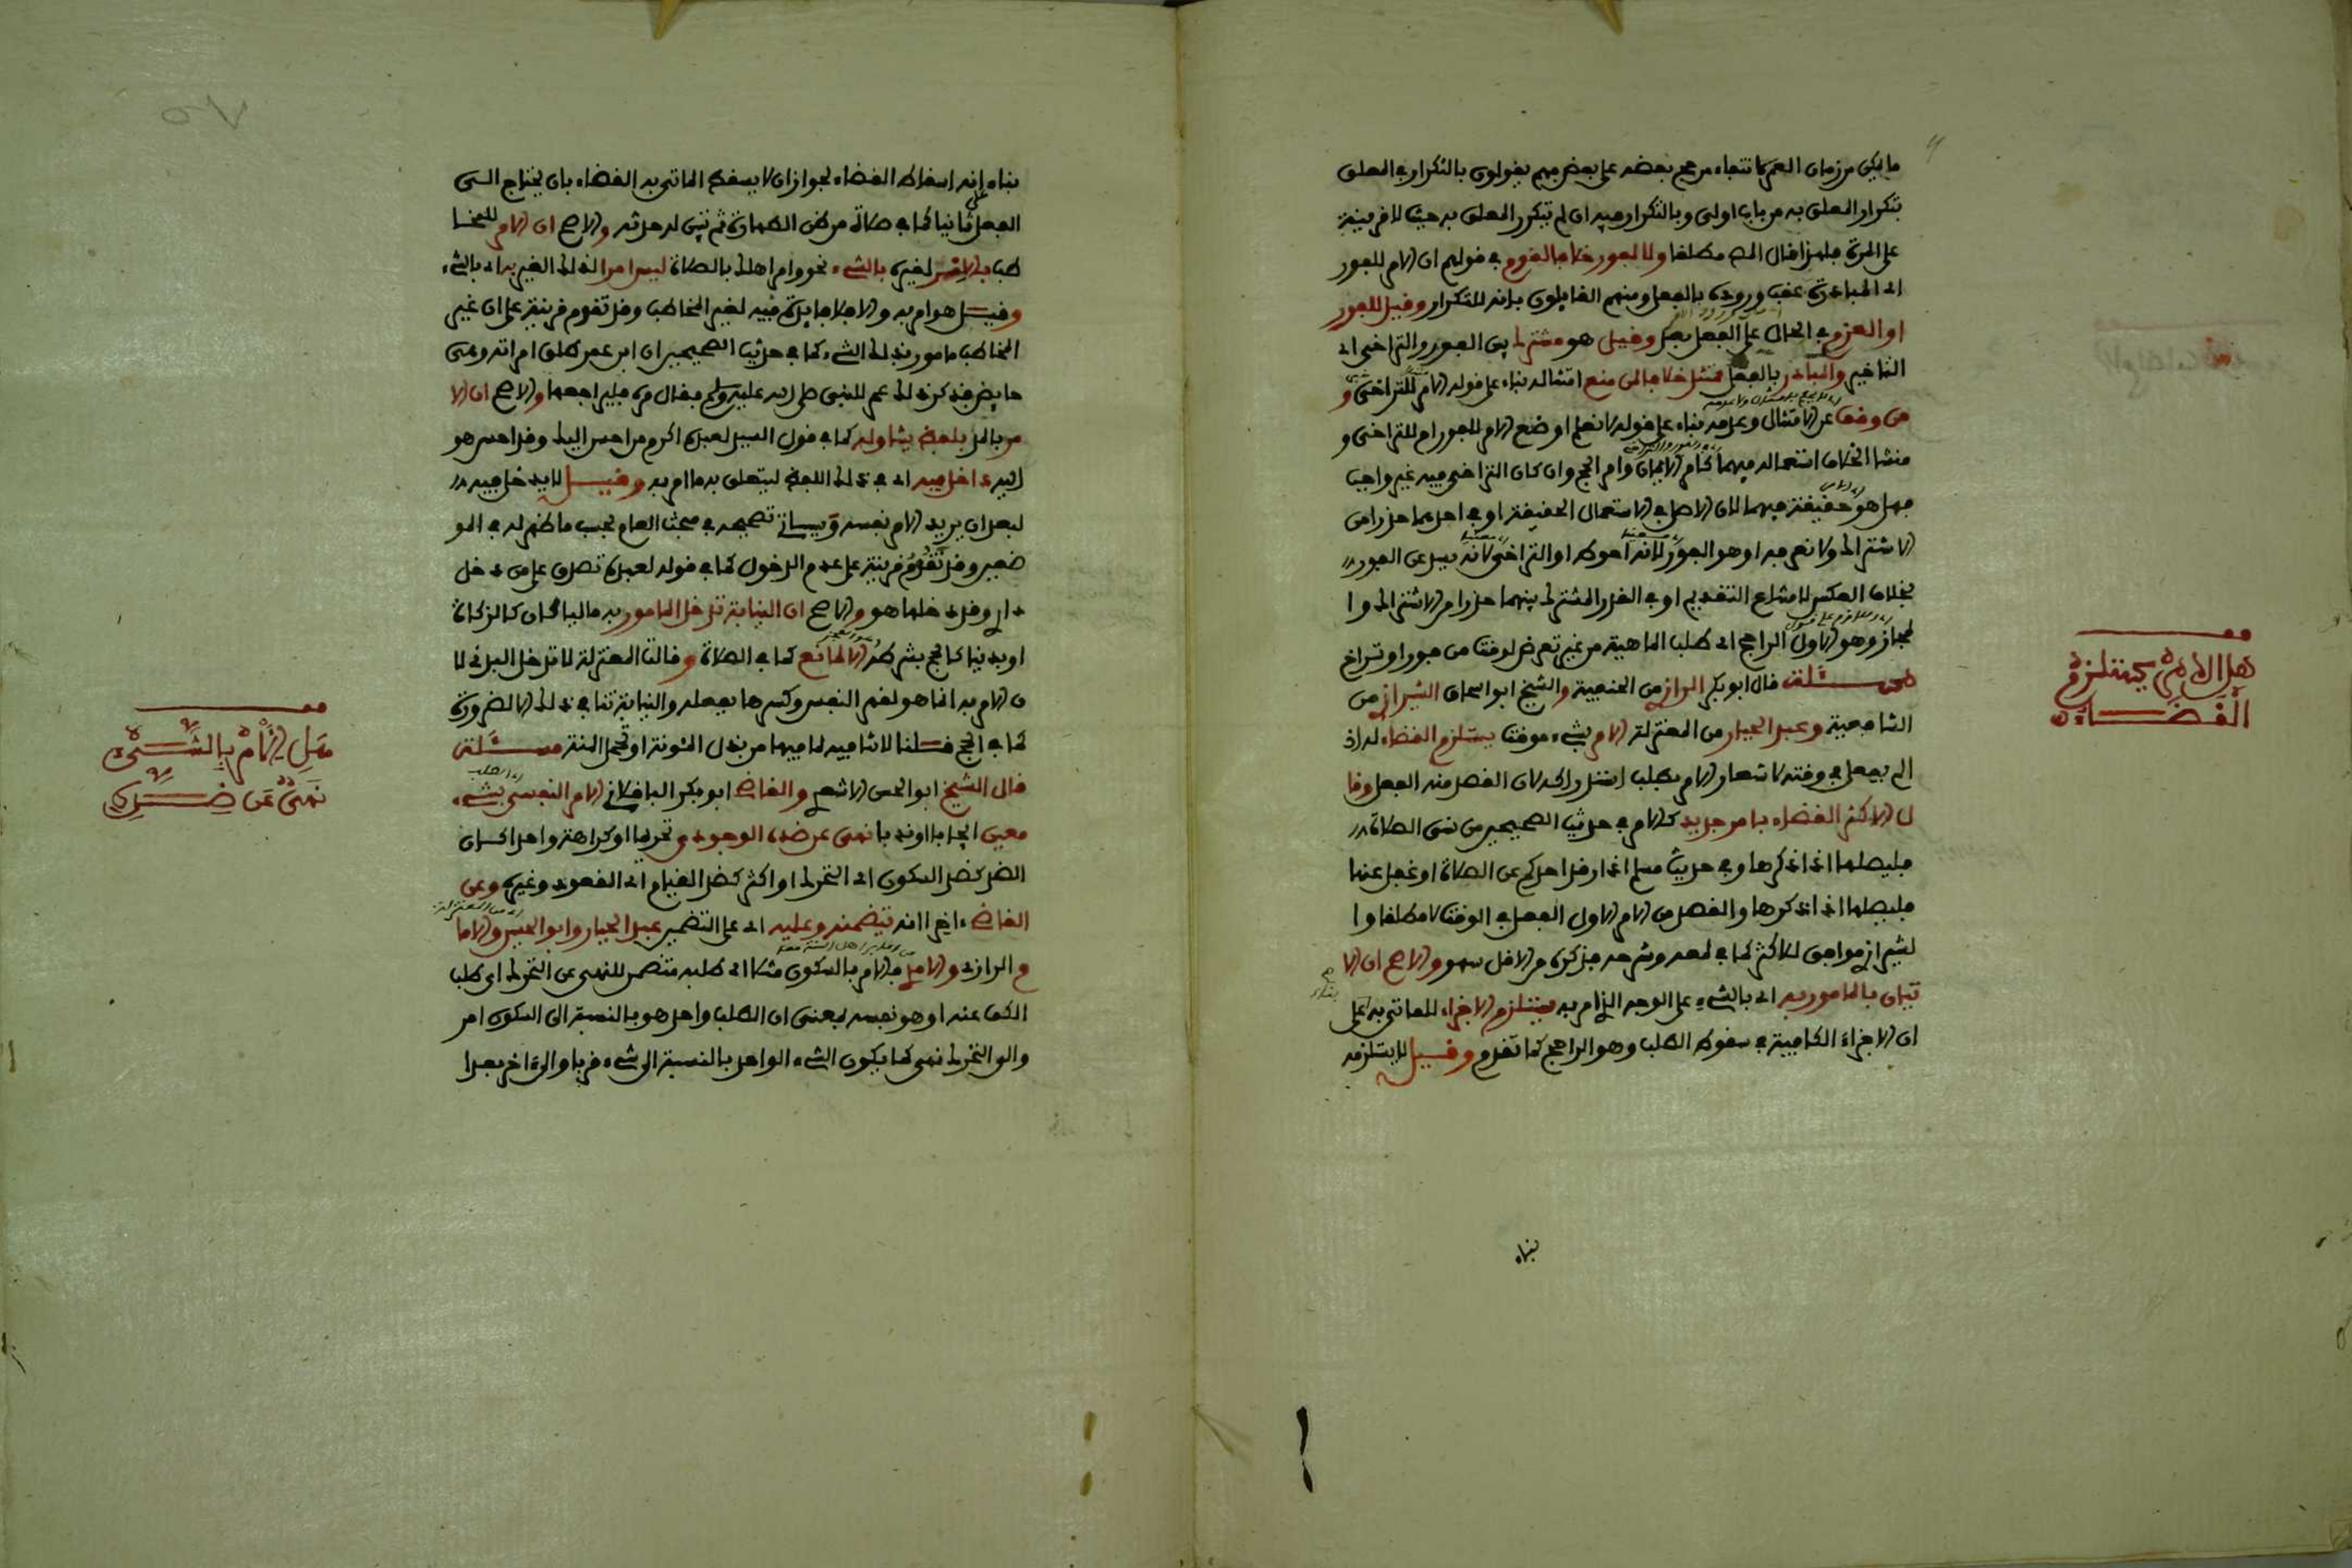 ما يمكن من زمان العمر لانتفاء مرجح بعضه على بعض فهم يقولون بالتكرار في المعلق
بتكرار المعلق به من باب اولى وبالتكرار فيه ان لم يتكرر المعلق به حيث لا قرينة
على المرة فلهذا قال المص مطلقا ولا لفور خلافا لقوم في قولهم ان الامر للفور
اي المبادرة عقب وروده بالفعل ومنهم القايلون بانه للتكرار وقيل للفور
او العزم في الحال على الفعل بعد وقيل هو مشترك بين الفور والتراخي اي
التاخير والمبادر بالفعل ممتثل خلافا لمن منع امتثاله بناء على قوله الامر للتراخي و
من وقف عن الامتثال وعدمه بناء على قوله لا نعلم اوضع الامر للفور ام للتراخي و
منشا الخلاف استعماله فيهما كامر الايمان وامر الحج وان كان التراخي فيه غير واجب
فهل هو حقيقة فيهما لان الاصل في الاستعمال الحقيقة او في احدهما حذرا من
الاشتراك ولا نعرفه او هو الفور لانه احوط او التراخي لانه يسد عن الفور
بخلاف العكس لامتناع التقديم او في القدر المشترك بينهما حذرا من الاشتراك وا
لمجاز وهو الاول الراجح اي طلب الماهية من غير تعرض لوقت من فور او تراخ
مسئلة قال ابو بكر الرازي من الحنفية والشيخ ابو اسحاق الشيرازي من
الشافعية وعبد الجبار من المعتزلة الامر بشيء موقت يستلزم القضاء له اذ
لم يفعل في وقته لاشعار الامر بطلب استدراكه لان القصد منه الفعل وقا
ل الاكثر القضاء بامر جديد كالامر في حديث الصحيحين من نسي الصلاة
فليصلها اذا ذكرها وفي حديث مسلم اذا رقد احدكم عن الصلاة او غفل عنها
فليصلها اذا ذكرها والقصد من الامر الاول الفعل في الوقت لا مطلقا وا
لشيرازي موافق للاكثر كما في لمعه وشرحه فذكره من الاقل سهو والاصح ان الا
تيان بالمامور به اي بالشيء على الوجه الذي امر به يستلزم الاجزاء للماتي به على
ان الاجزاء الكفاية في سقوط الطلب وهو الراجح كما تقدم وقيل لا يستلزمه
بناء
هل الامر يستلزم
القضاء
بناء انه اسقاط القضاء لجواز ان لا يسقط الماتي به القضاء بان يحتاج الى
الفعل ثانيا كما في صلاة من ظن الطهارة ثم تبين له حدثه والاصح ان الامر للمخا
طب بالامر لغيره بالشيء نحو وامر اهلك بالصلاة ليس امرا لذلك الغير به اي بالشيء
وقيل هو امر به والا فلا فايدة فيه لغير المخاطب وقد تقوم قرينة على ان غير
المخاطب مامور بذلك الشيء كما في حديث الصحيحين ان ابن عمر طلق امراته وهي
حايض فذكر ذلك عمر للنبي صلى الله عليه وسلم فقال مره فليراجعها والاصح ان الا
مر بالمر بلفظ يتناوله كما في قول السيد لعبده اكرم من احسن اليك وقد احسن هو
اليه داخل فيه اي في ذلك اللفظ ليتعلق به ما امر به وقيل لا يدخل فيه
لبعد ان يريد الامر نفسه وسياتي تصحيحه في مبحث العام بحسب ما ظهر له في المو
ضعين وقد تقوم قرينة على عدم الدخول كما في قوله لعبده تصدق على من دخل
داري وقد دخلها هو والاصح ان النيابة تدخل المامور به ماليا كان كالزكاة
او بدنيا كالحج بشرطه الا لمانع كما في الصلاة وقالت المعتزلة لا تدخل البدني لا
ن الامر به انما هو لقهر النفس وكسرها بفعله والنيابة تنافي ذلك الا لضرورة
كما في الحج قلنا لا تنافيه لما فيها من بذل المئونة او تحمل المنة مسئلة
قال الشيخ ابو الحسن الاشعري والقاضي ابو بكر الباقلاني الامر النفسي بشيء
معين ايجابا او ندبا نهي عن ضده الوجودي تحريما او كراهة واحدا كان
الضد كضد السكون اي التحرك او اكثر كضد القيام اي القعود وغيره وعن
القاضي اخرا انه يتضمنه وعليه اي على التضمن عبد الجبار وابو الحسين والاما
م الرازي والامدي فالامر بالسكون مثلا اي طلبه متضمن للنهي عن التحرك اي طلب
الكف عنه او هو نفسه بمعنى ان الطلب واحد هو بالنسبة الى السكون امر
والى التحرك نهي كما يكون الشيء الواحد بالنسبة الى شيء قربا والى اخر بعدا
هل الامر بالشيء
نهي عن ضده